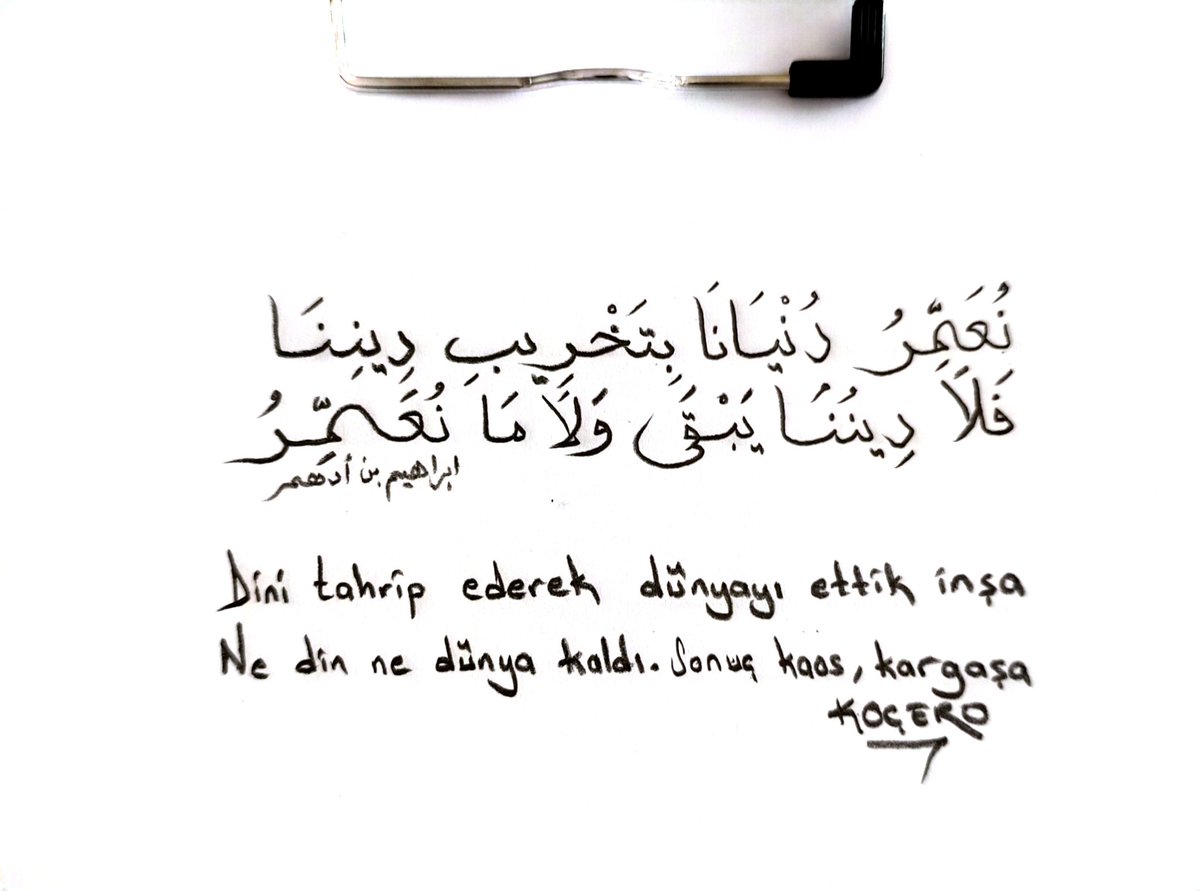 نُعَمِّرُ دُنْيَانَا بِتَخْرِيبِ دِينِنَا
فَلَا دِينُنَا يَبْقَى وَلَا مَا نُعَمِّرُ
ابراهيم بن أدهم
Dini tahrip ederek dünyayı ettik inşa
Ne din ne dünya kaldı. Sonuç kaos, kargaşa
KOÇERO